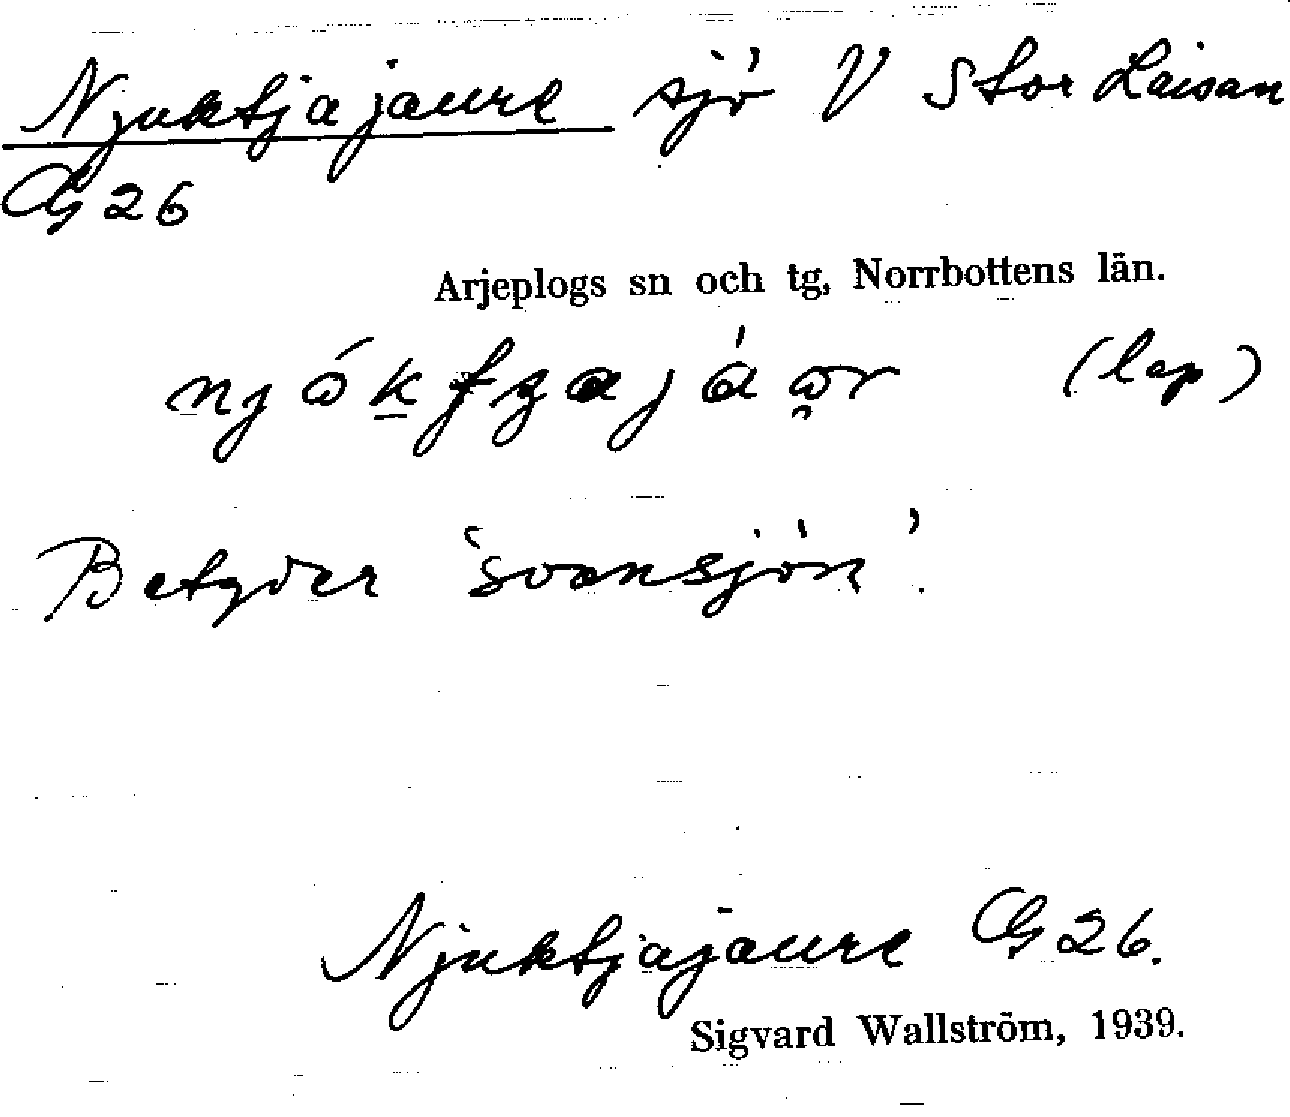 Njuktjajaure sjö V Stor Laisan
G 26
Arjeplogs sn och tg, Norrbottens län.
(lap)
Betyder 'svansjön'.
Njuktjajaure G 26.
Sigvard Wallström, 1939.